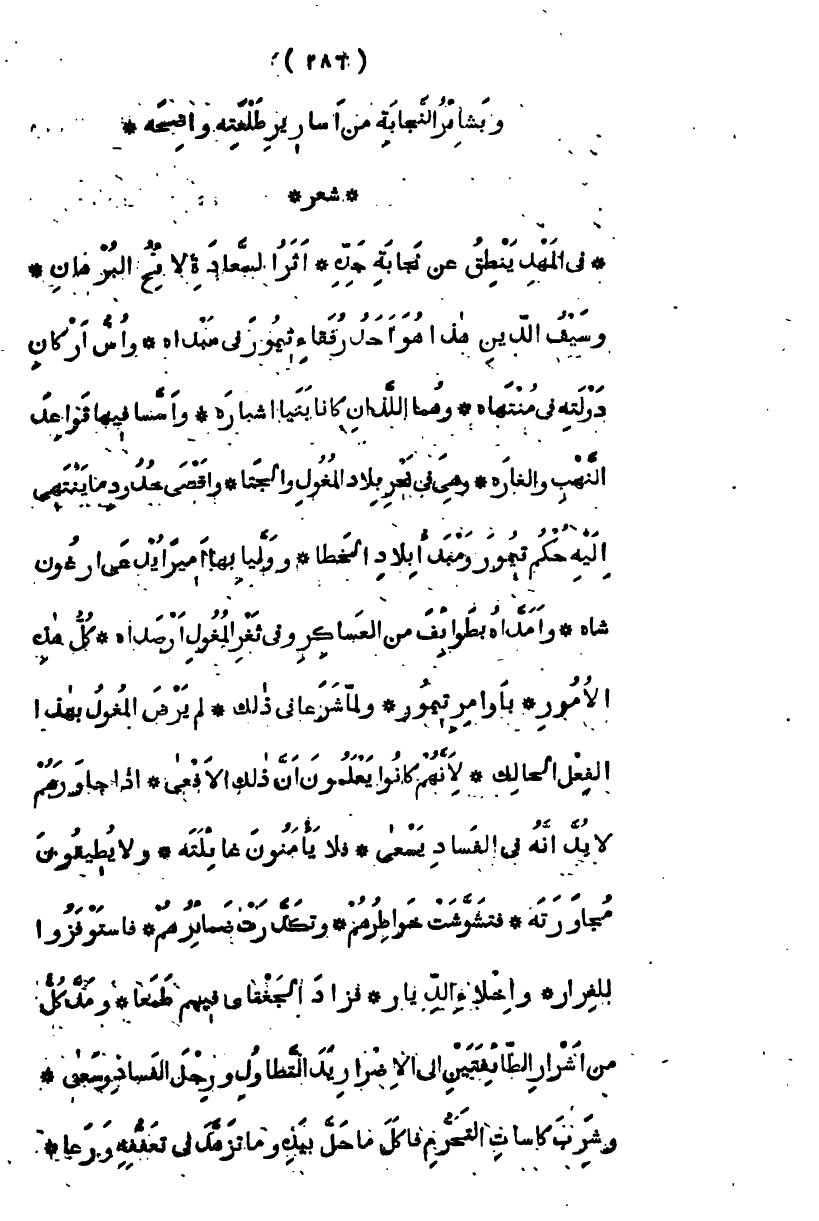 ( ٢٨٦ )
وبَشائِرُ النَّجابَةِ من اَسارِيرِ طَلْعَتِه واضِحَه *
* شعر *
* فى المَهْدِ يَنْطِقُ عن نَجابَةِ جَدِّهِ * اَثَرُ السَّعادَةِ لائِحُ البُرْهانِ *
وسَيْفُ الدّينِ هٰذا هُوَ اَحَدُ رُفَقاءِ تِيمُورَ فى مَبْداه * واُسُّ اَرْكانِ
دَوْلَتِه فى مُنْتَهاه * وهُما اللَّذانِ كانا بَنَيا اشبارَه * واَسَّسا فيها قَواعِدَ
النَّهْبِ والغارَه * وهِىَ فى نَحْرِ بِلاد المُغُولِ والجَتا * واَقْصَى حُدُودِ ما يَنْتَهِى
اِلَيْهِ حُكْمُ تِيمُورَ ومَبْدَأُ بِلادِ الخَطا * ووَلَّيا بها اَمِيرًا يُدْعَى ارغُون
شاه * واَمَدَّاهُ بطَوائِفَ من العَساكِرِ وفى ثَغْرِ المُغُولِ اَرْصَداه * كُلُّ هٰذِهِ
الاُمُورِ * باَوامِرِ تِيمُور * ولمّا شَرَعا فى ذٰلك * لم يَرْضَ المُغُولُ بهٰذا
الفِعْلِ الحالِك * لِاَنَّهُمْ كانُوا يَعْلَمُونَ اَنَّ ذٰلك الاَفْعىٰ * اذا جاوَرَهُمْ
لابُدَّ انَّهُ فى الفَسادِ يَسْعىٰ * فلا يَأْمَنُونَ غائِلَتَه * ولا يُطِيقُونَ
مُجاوَرَتَه * فتَشَوَّشَتْ خَواطِرُهُمْ * وتكَدَّرَتْ ضَمائِرُهُمْ * فاستَوْفَزُوا
للفِرار * واِخْلاءِ الدِّيار * فزادَ الجَغْتاى فيهم طَمَعًا * ومَدَّ كُلٌّ
من اَشْرارِ الطّائِفَتَيْنِ الى الاِضْرارِ يَدَ التَّطاوُلِ ورِجْلَ الفَسادِ وسَعىٰ *
وشَرِبَ كاساتِ التَحَرُّمِ فاكَلَ ما حَلَّ بيَدِهِ وما تزَهَّدَ فى تعَفُّفِهِ وَرَعا *